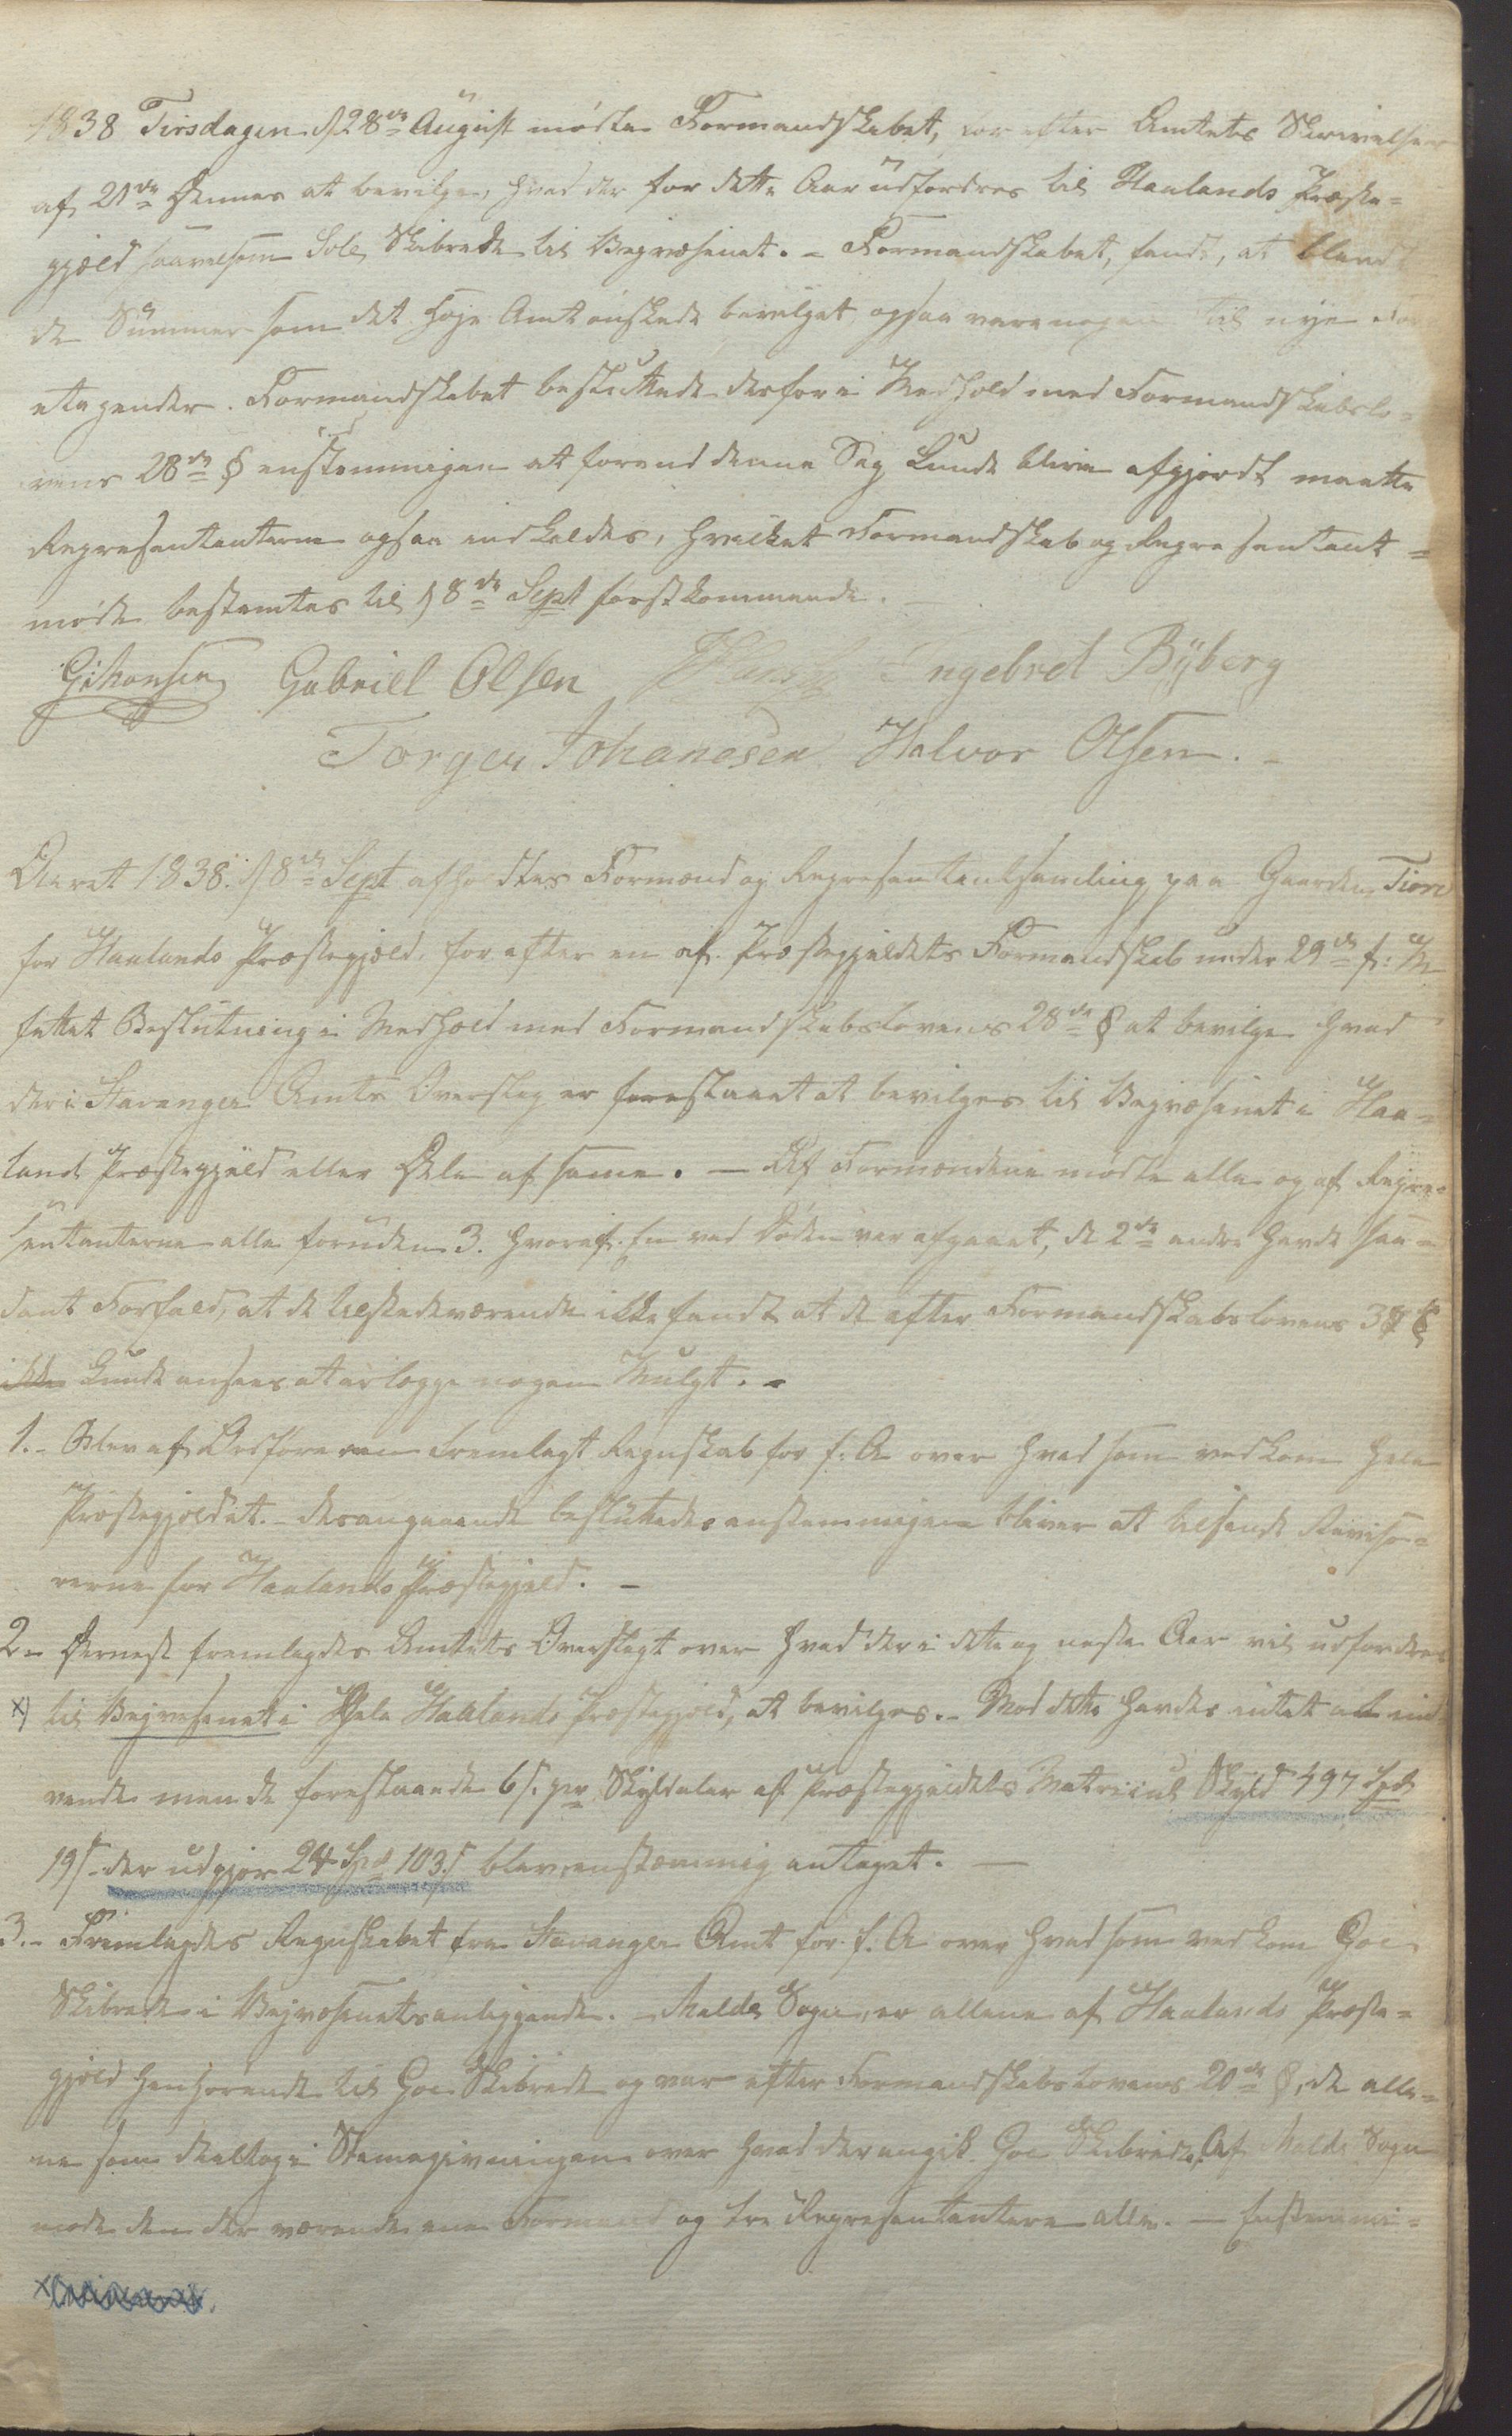 1838 Tirsdagen d 28de August mødte Formandskabet, for efter Amtets Skrivelse
af 21de Dennes at bevilge, hvad der for dette Aar udfordres til Haalands Præste-
gjeld saavelsom Sole Skibrede til Veyvæsenet. - Formandskabet, fandt, at blandt
de Summer som det høje Amt ønskede bevilget ogsaa vare nogen til nye For
etagender. Formandskabet besluttede derfor i Medhold med Formandskabslo-
vens 28de § enstemmigen at forend denne Sag kunde blive afgjordt maatte
Repræsentanterne ogsaa indkaldes, hvilket Formandskab og Repræsentant-
møde bestemtes til d 8de Sept førstkommende.
Gabriel Olsen Ingebret Byberg
Torger Johanesen Halvor Olsen.
Aaret 1838. d 8de Sept afholdtes Formænd og Repræsentantsamling paa Gaarden Tiore
for Haalands Præstegjæld, for efter en af Præstegjældets Formandskab under 29de f: M
fattet Beslutning i Medhold med Formandskabslovens 28de § at bevilge hvad
der i Stavanger Amts Overslag er forestaaet at bevilges til Veyvæsenet i Haa-
land Præstegjæld eller Dele af samme. - Af Formændene mødte alle og af Repræ-
sentanterne alle foruden 3. hvoraf En ved Døden var afgaaet, de 2de andre havde saa-
dant Forfald, at de tilstedeværende ikke fandt at de efter Formandskabslovens 38 §
ikke kunde ansees at erlægge nogen Mulgt. -
1. - Blev af Ordføreren fremlagt Regnskab for f: A over hvad som vedkom hele
Præstegjældet. - desangaaende besluttedes enstemmigen bliver at tilsende Reviso-
rerne for Haalands Præstegjeld. -
2 - Dernest fremlagdes Amtets Overslagt over hvad der i dette og neste Aar vil udfordres
x) til Veyvesenet i Hele Haalands Præstegjeld, at bevilges. - Mod dette havdes intet at ind
vende men de foreslaaede 6 s. pr Skyldaler af Præstegjeldets Matricul Skyld 497 Spd
19 s. der udgjør 24 Spd 103 s blev enstemmig antaget. -
3. - Fremlagdes Regnskabet fra Stavanger Amt for f: A over hvad som vedkom Goe
Skibrede i Veyvæsenets anliggende. - Malde Sogn, er allene af Haalands Præste-
gjeld henhørende til Goe Skibrede og var efter Formandskabslovens 20de §, de alle-
ne som deeltog i Stemmegivningen over hvad der angik Goe Skibrede. Af Malde Sogn
møde den der værende ene Formand og tre Repræsentantere alle. - Enstemmi-